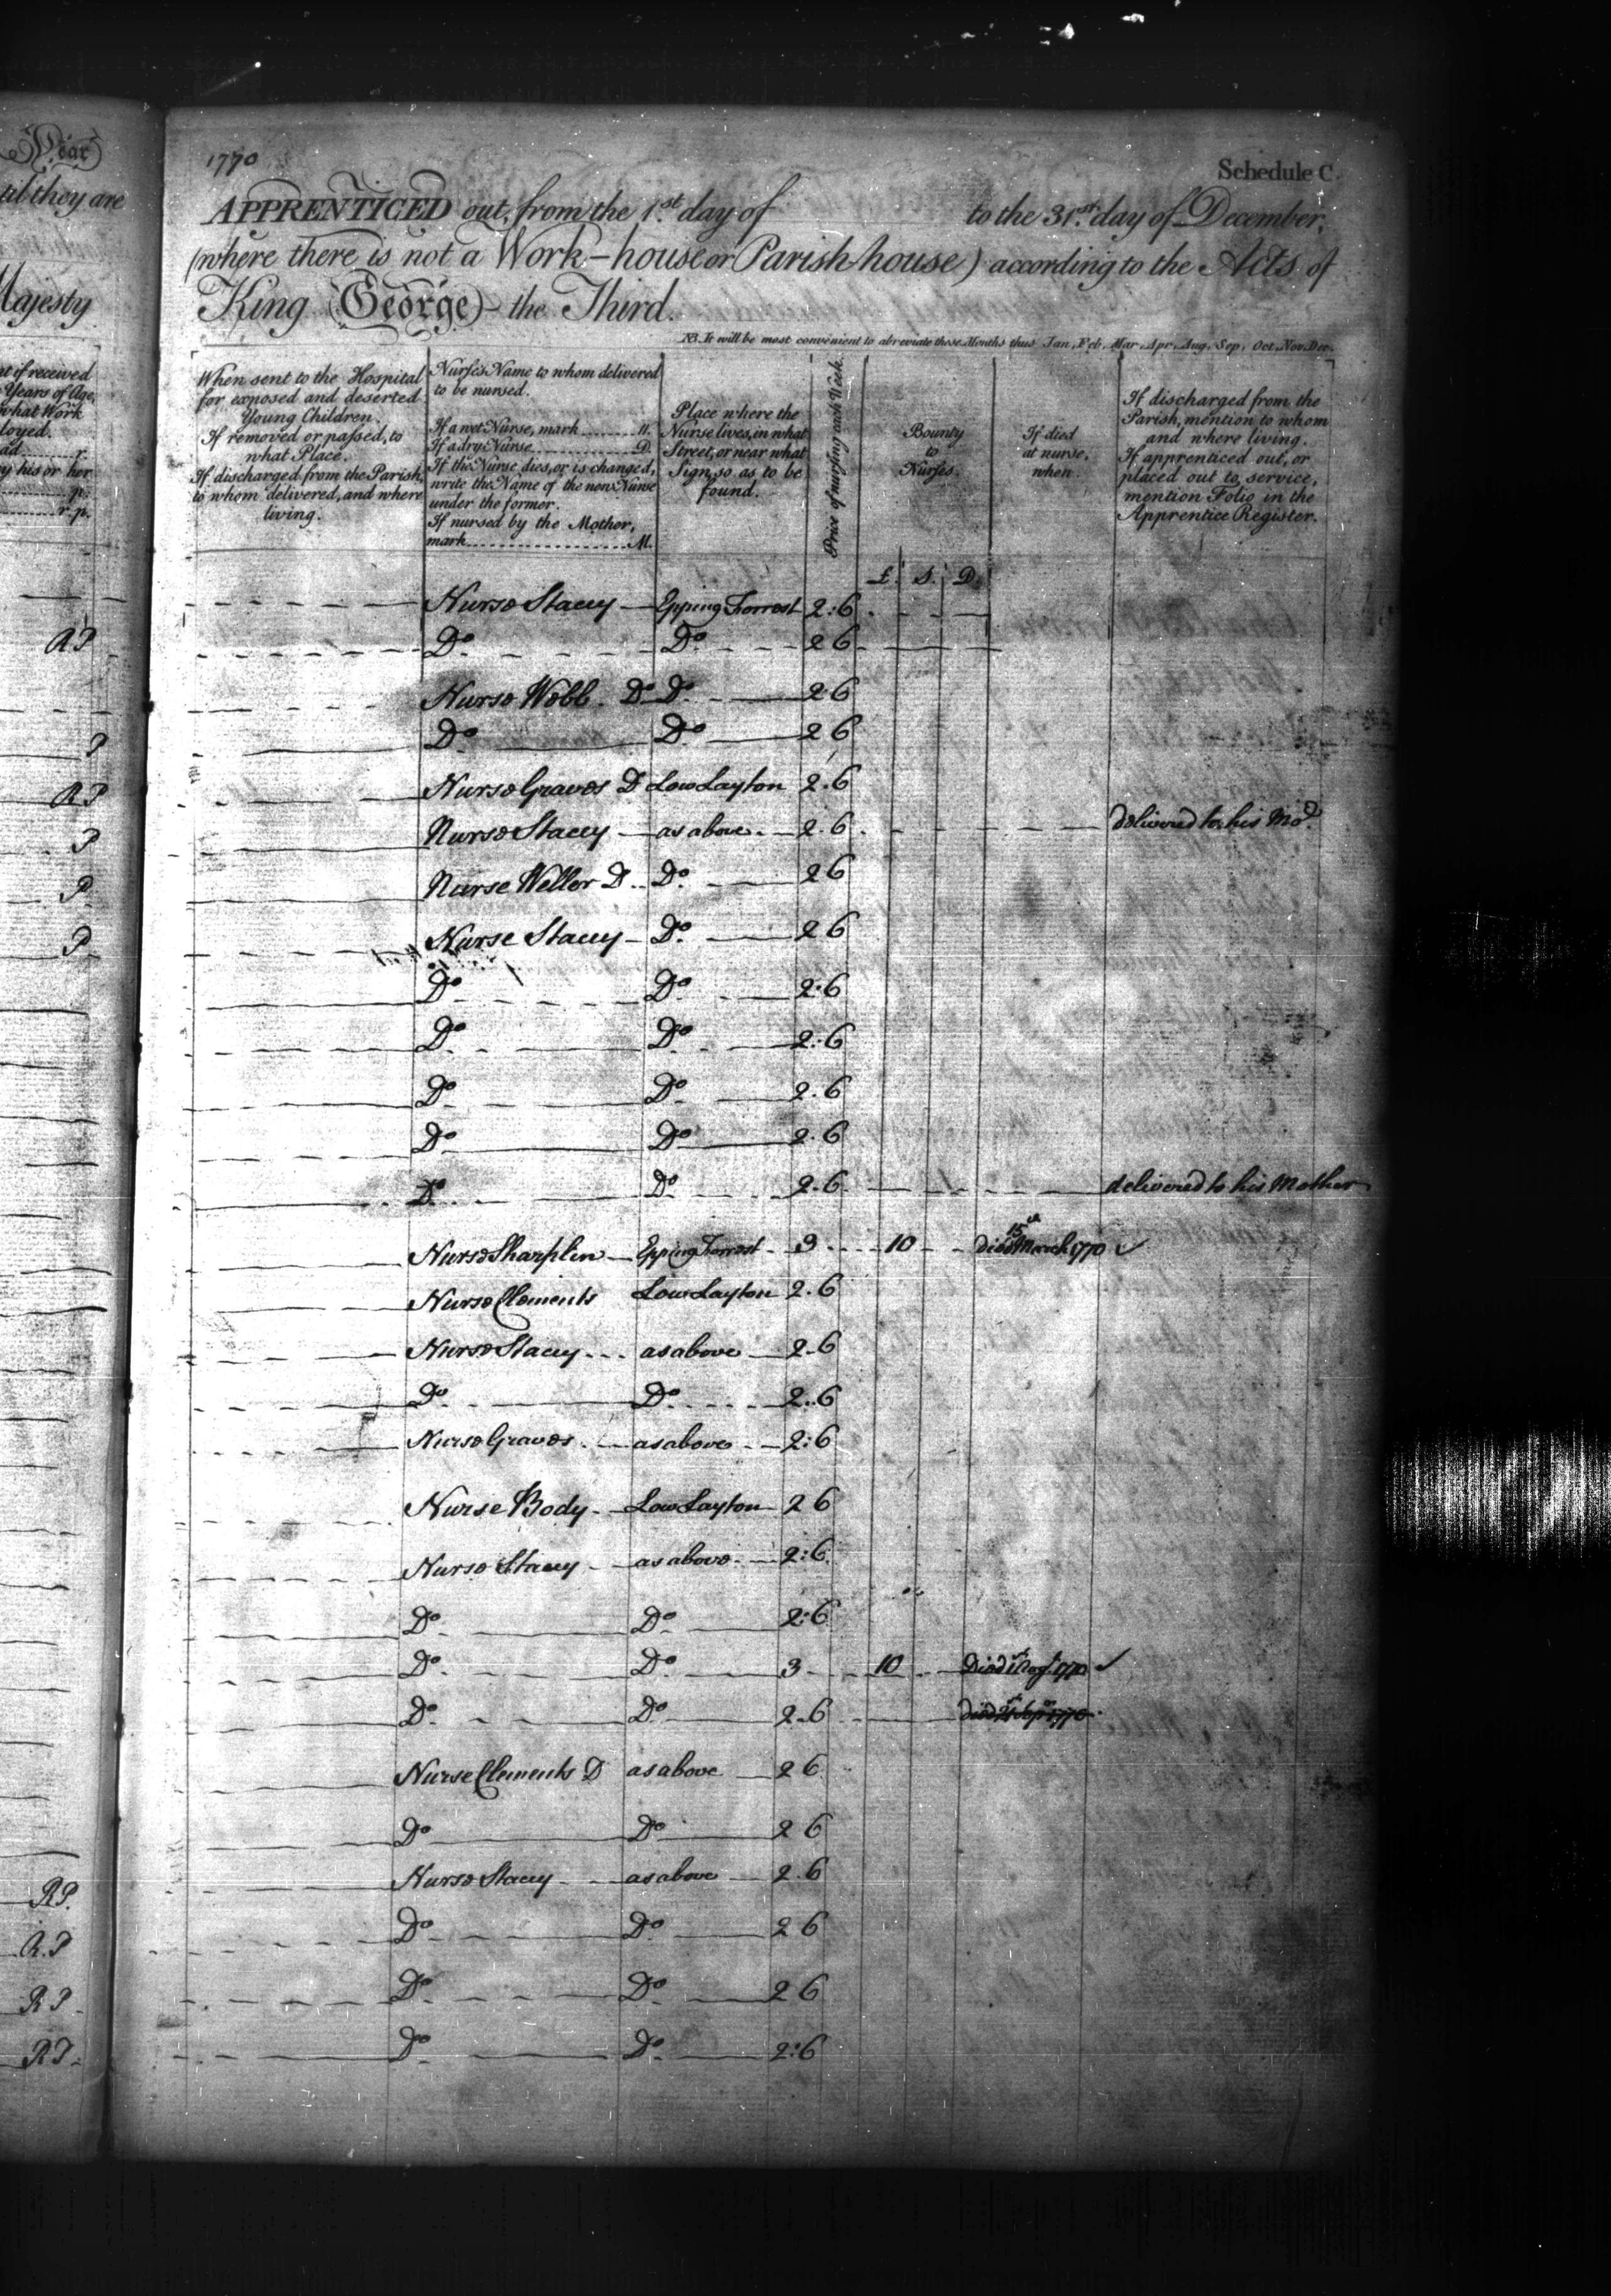 Year
til they are
Majesty
nt if received
Years of Age,
what Work
loyed.
ad r.
y his or her
p.
r.p.
RP
P
RP
P
P
P
RP.
R.P
RP
RP.
1770
Schedule C.
APPRENTICED out, from the 1.st day of to the 31.st day of December,
(where there is not a Work-house or Parish-house) according to the Acts of
King George the Third.
NB. It will be most convenient to abreviate these Months thus Jan, Feb, Mar, Apr, Aug, Sep, Oct, Nov, Dec.
When sent to the Hospital
for exposed and deserted
Young Children.
If removed or passed, to
what Place.
If discharged from the Parish,
to whom delivered, and where
living.
Nurse's Name to whom delivered
to be nursed.
If a wet Nurse, mark W.
If a dry Nurse D.
If the Nurse dies, or is changed,
write the Name of the new Nurse
under the former.
If nursed by the Mother,
mark M.
Place where the
Nurse lives, in what
Street, or near what
Sign, so as to be
found.
Price of nursing each Week.
Bounty
to
Nurses.
If died
at nurse,
when
If discharged from the
Parish, mention to whom
and where living.
If apprenticed out, or
placed out to service,
mention Folio in the
Apprentice Register.
£. S. D.
Nurse Stacey Epping Forrest 2:6
Do Do 2 6
Nurse Webb. D Do 2 6
Do Do 2 6
Nurse Graves D Low Layton 2.6
Nurse Stacey as above 2.6 delivered to his Mor
Nurse Weller D Do 2 6
Nurse Stacey Do 2 6
Do Do 2:6
Do Do 2:6
Do Do 2.6
Do Do 2.6
Do Do 2.6 delivered to his Mother
Nurse Sharplin Epping Forrest 3 10 died 15th March 1770 ✓
Nurse Clements Low Layton 2.6
Nurse Stacey as above 2.6
Do Do 2.6
Nurse Graves as above 2:6
Nurse Body Low Layton 2 6
Nurse Stacey as above 2:6
Do Do 2:6
Do Do 3 10 Died 1770 ✓
Do Do 2.6 died 1770
Nurse Clements D as above 2 6
Do Do 2 6
Nurse Stacey as above 2.6
Do Do 2 6
Do Do 2 6
Do Do 2:6